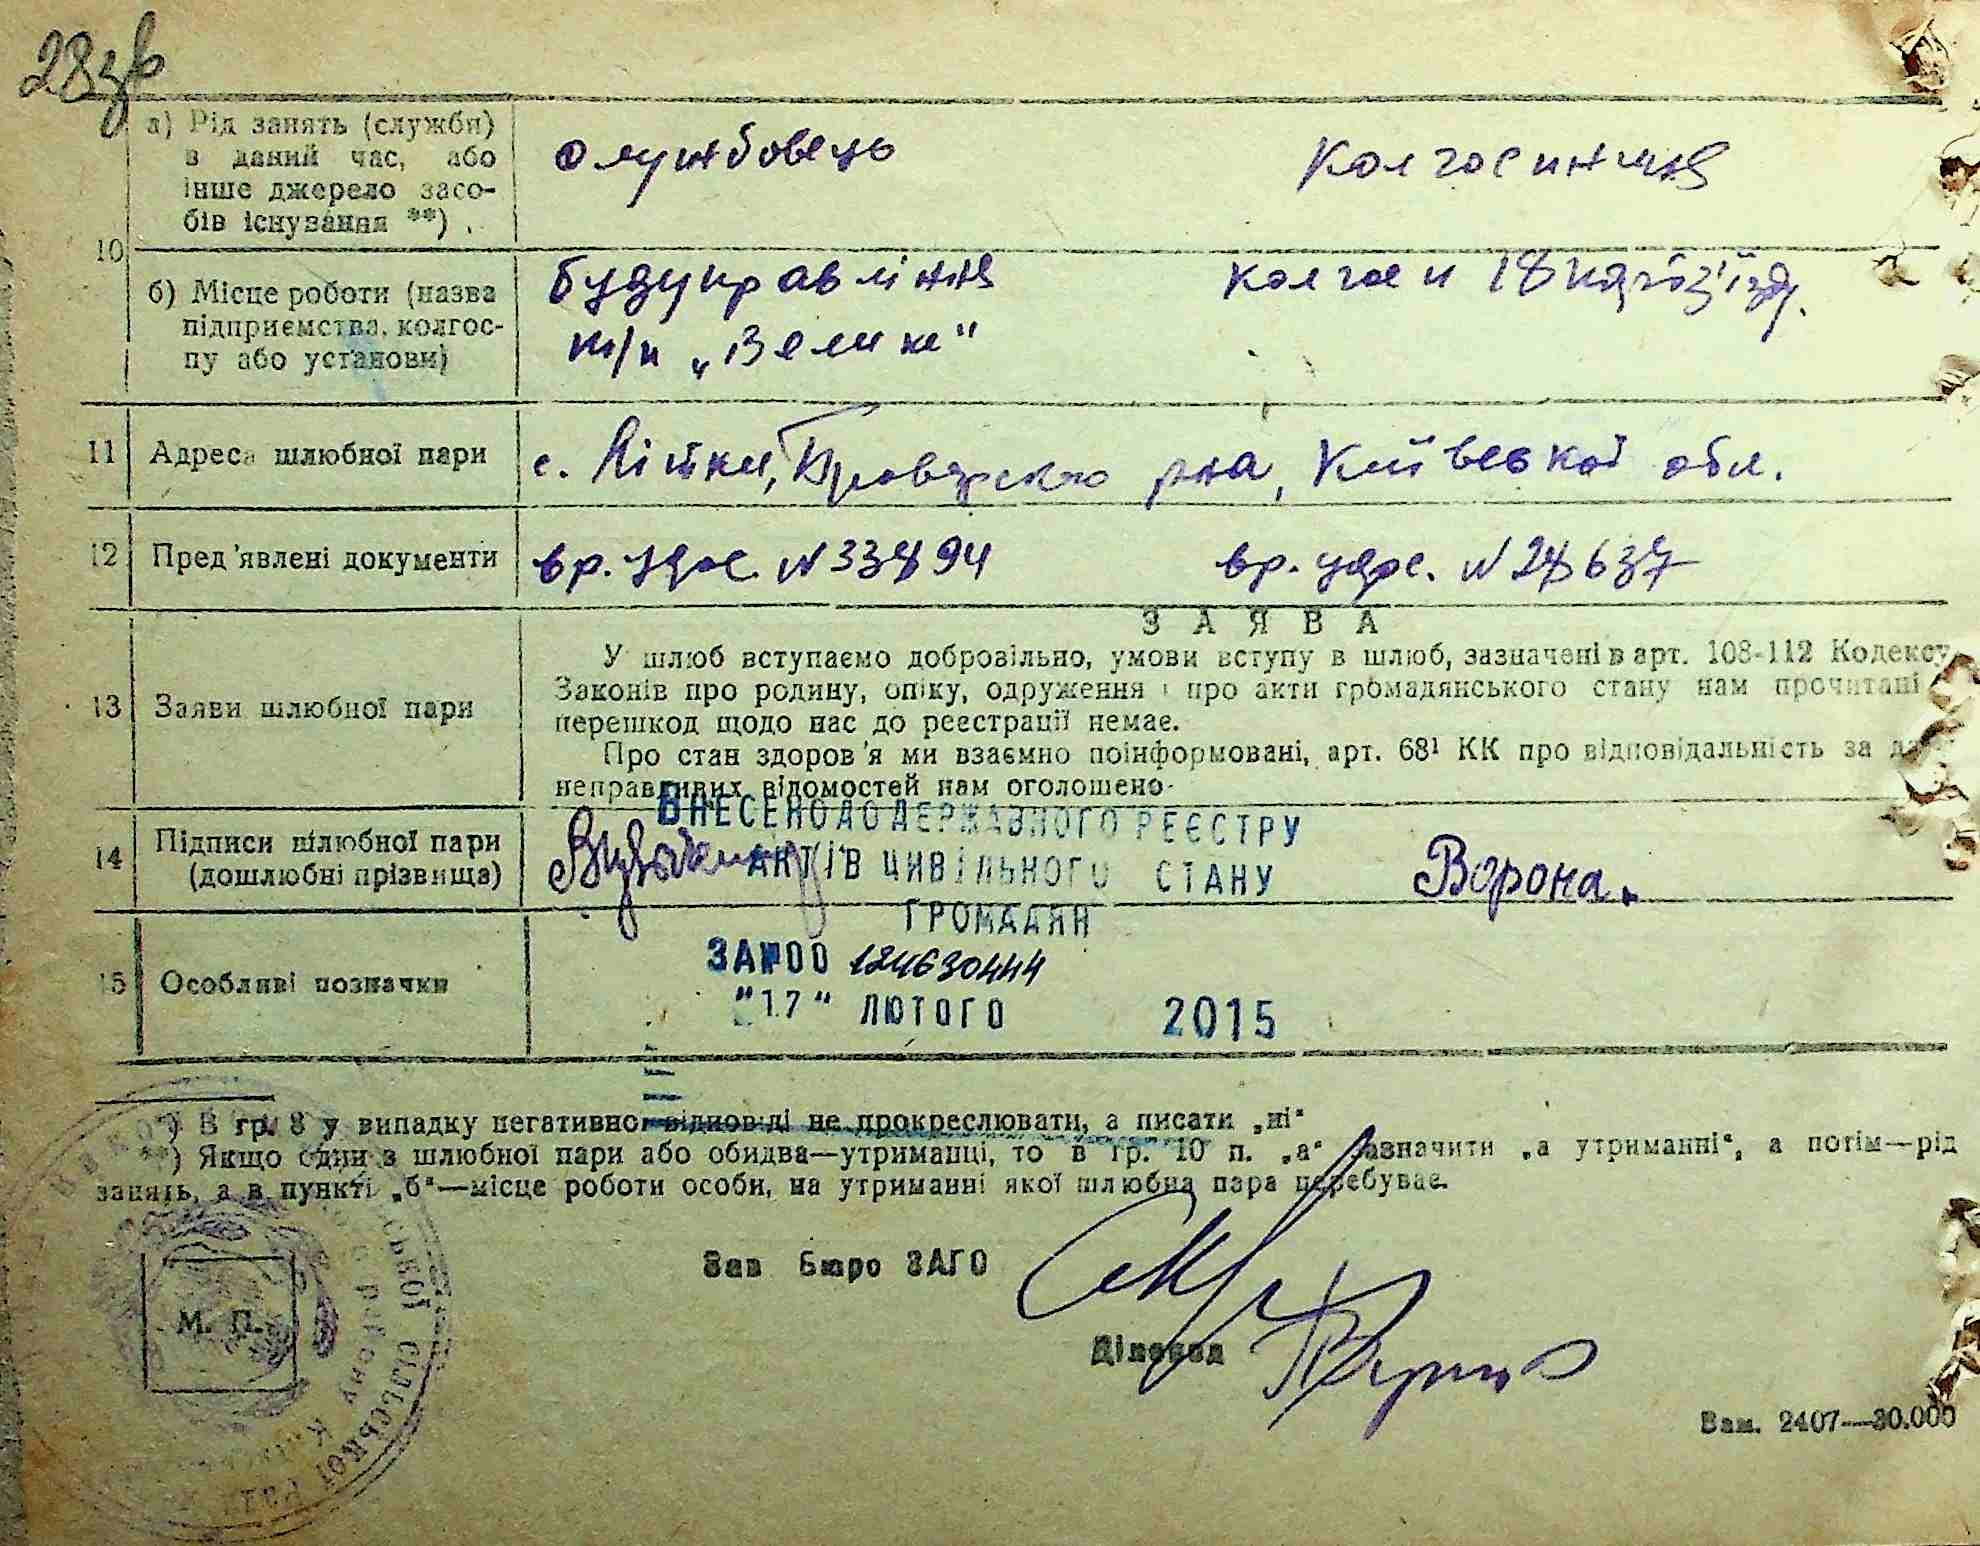 28зв
10
а) Рід занять (служби) в даний час, або інше джерело засобів існування **) .
службовець
колгоспниця
б) Місце роботи (назва підприємства, колгоспу або установи)
будуправління
п/п „Велике"
колгосп 18 п'яртз'їзду.
11 Адреса шлюбної пари
с. Літки, Броварського р-на, Київської обл.
12 Пред'явлені документи
вр. удос. №
вр. удос. №
ЗАЯВА
13 Заяви шлюбної пари
У шлюб вступаємо добровільно, умови вступу в шлюб, зазначені в арт. 108-112 Кодексу
Законів про родину, опіку, одруження і про акти громадянського стану нам прочитані
перешкод щодо нас до реєстрації немає.
Про стан здоров'я ми взаємно поінформовані, арт. 68¹ КК про відповідальність за
неправдивих відомостей нам оголошено.
14 Підписи шлюбної пари
(дошлюбні прізвища)
Ворона.
ВНЕСЕНО ДО ДЕРЖАВНОГО РЕЄСТРУ
АКТІВ ЦИВІЛЬНОГО СТАНУ
ГРОМАДЯН
15 Особливі позначки
ЗА №00 124630444
"17" ЛЮТОГО 2015
*) В гр. 8 у випадку негативної відповіді не прокреслювати, а писати „ні"
**) Якщо один з шлюбної пари або обидва—утриманці, то в гр. 10 п. „а" зазначити „а утриманні", а потім—рід
занять, а в пункті „б"—місце роботи особи, на утриманні якої шлюбна пара перебуває.
Зав Бюро ЗАГС
М. П.
Діловод
Зам. 2407—30.000